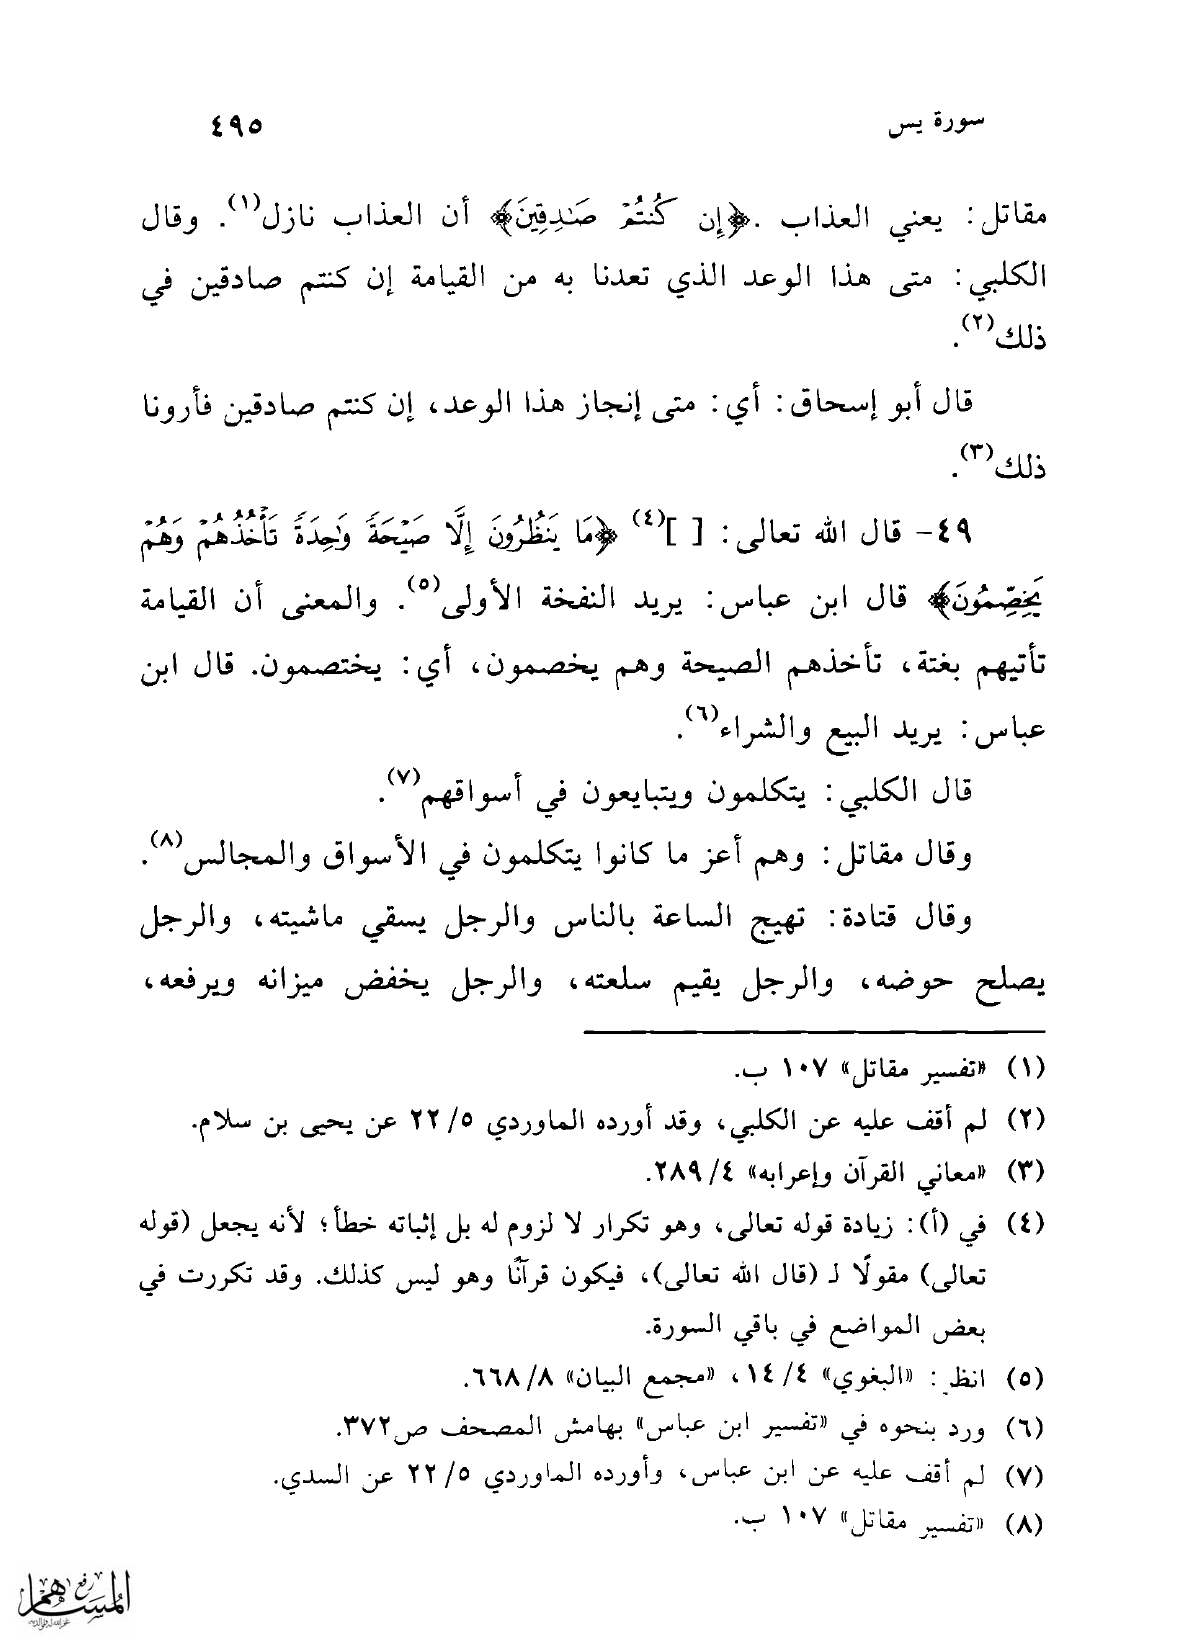 سورة يس
٤٩٥
مقاتل: يعني العذاب. ﴿إِن كُنتُمْ صَٰدِقِينَ﴾ أن العذاب نازل(١). وقال
الكلبي: متى هذا الوعد الذي تعدنا به من القيامة إن كنتم صادقين في
ذلك(٢).
قال أبو إسحاق: أي: متى إنجاز هذا الوعد، إن كنتم صادقين فأرونا
ذلك(٣).
٤٩- قال الله تعالى: [ ](٤) ﴿مَا يَنظُرُونَ إِلَّا صَيْحَةً وَٰحِدَةً تَأْخُذُهُمْ وَهُمْ
يَخِصِّمُونَ﴾ قال ابن عباس: يريد النفخة الأولى(٥). والمعنى أن القيامة
تأتيهم بغتة، تأخذهم الصيحة وهم يخصمون، أي: يختصمون. قال ابن
عباس: يريد البيع والشراء(٦).
قال الكلبي: يتكلمون ويتبايعون في أسواقهم(٧).
وقال مقاتل: وهم أعز ما كانوا يتكلمون في الأسواق والمجالس(٨).
وقال قتادة: تهيج الساعة بالناس والرجل يسقي ماشيته، والرجل
يصلح حوضه، والرجل يقيم سلعته، والرجل يخفض ميزانه ويرفعه،
(١) «تفسير مقاتل» ١٠٧ ب.
(٢) لم أقف عليه عن الكلبي، وقد أورده الماوردي ٥/ ٢٢ عن يحيى بن سلام.
(٣) «معاني القرآن وإعرابه» ٤/ ٢٨٩.
(٤) في (أ): زيادة قوله تعالى، وهو تكرار لا لزوم له بل إثباته خطأ؛ لأنه يجعل (قوله
تعالى) مقولًا لـ (قال الله تعالى)، فيكون قرآنًا وهو ليس كذلك. وقد تكررت في
بعض المواضع في باقي السورة.
(٥) انظر: «البغوي» ٤/ ١٤، «مجمع البيان» ٨/ ٦٦٨.
(٦) ورد بنحوه في «تفسير ابن عباس» بهامش المصحف ص٣٧٢.
(٧) لم أقف عليه عن ابن عباس، وأورده الماوردي ٥/ ٢٢ عن السدي.
(٨) «تفسير مقاتل» ١٠٧ ب.